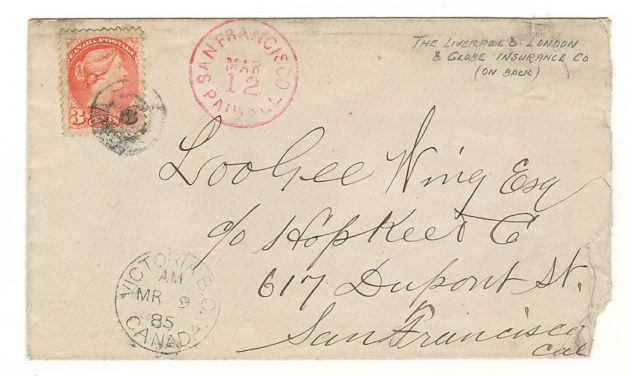 CANADA POSTAGE
3 CENTS
SAN FRANCISCO
MAR
12
PAID ALL
THE LIVERPOOL & LONDON
& GLOBE INSURANCE CO
(ON BACK)
Loo Gee Wing Esq
c/o Hop Kee & C
617 Dupont St.
San Francisco
Cal
VICTORIA, B.C.
AM
MR 9
85
CANADA